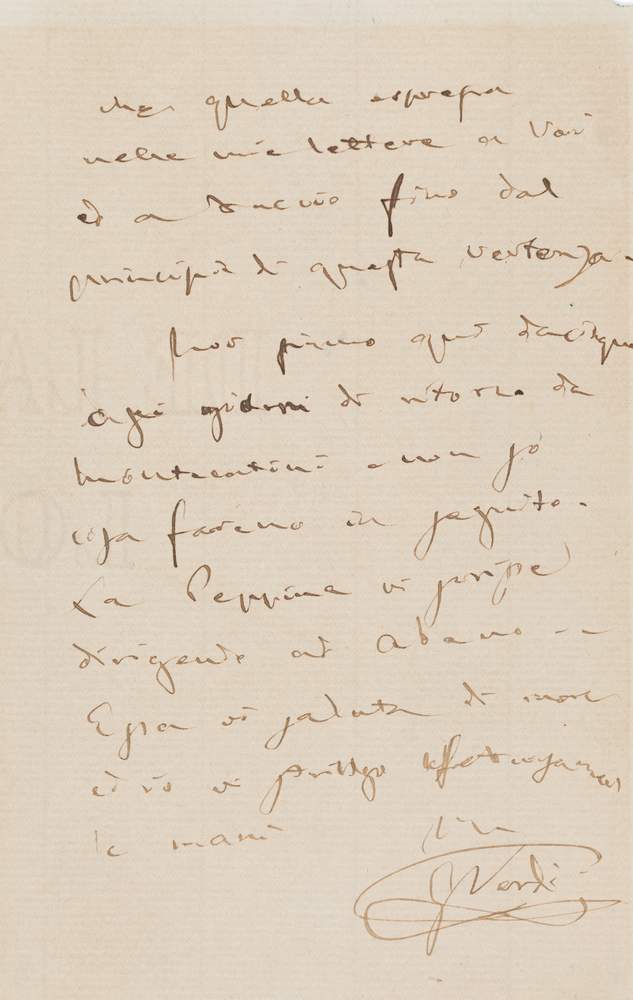 che quella espressa
nelle mie lettere a Voi
ed a fino dal
principio di questa vertenza.
Noi siamo quì da cinque
giorni di ritorno da
Montecatini e non so
cosa faremo in seguito.
La Peppina vi scrisse
dirigendo ad Abano --
Essa vi saluta di cuore
ed io vi stringo affettuosamen
le mani
G Verdi